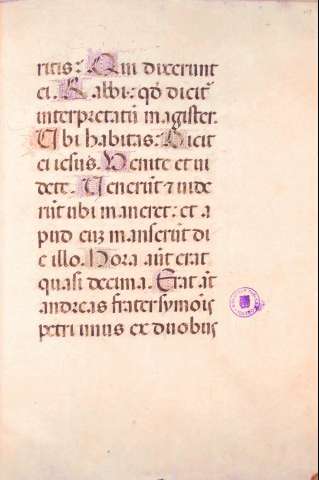 ritis: Qui dixerunt
ei. Rabbi: qd̄ dicit᷑
interpretatū magister.
Ubi habitas: Dicit
ei iesus. Venite et ui
dete. Venerūt ⁊ uide
rūt ubi maneret: et a
pud eū manserūt di
e illo. Hora aūt erat
quasi decima. Erat āt
andreas frater symōis
petri unus ex duobus